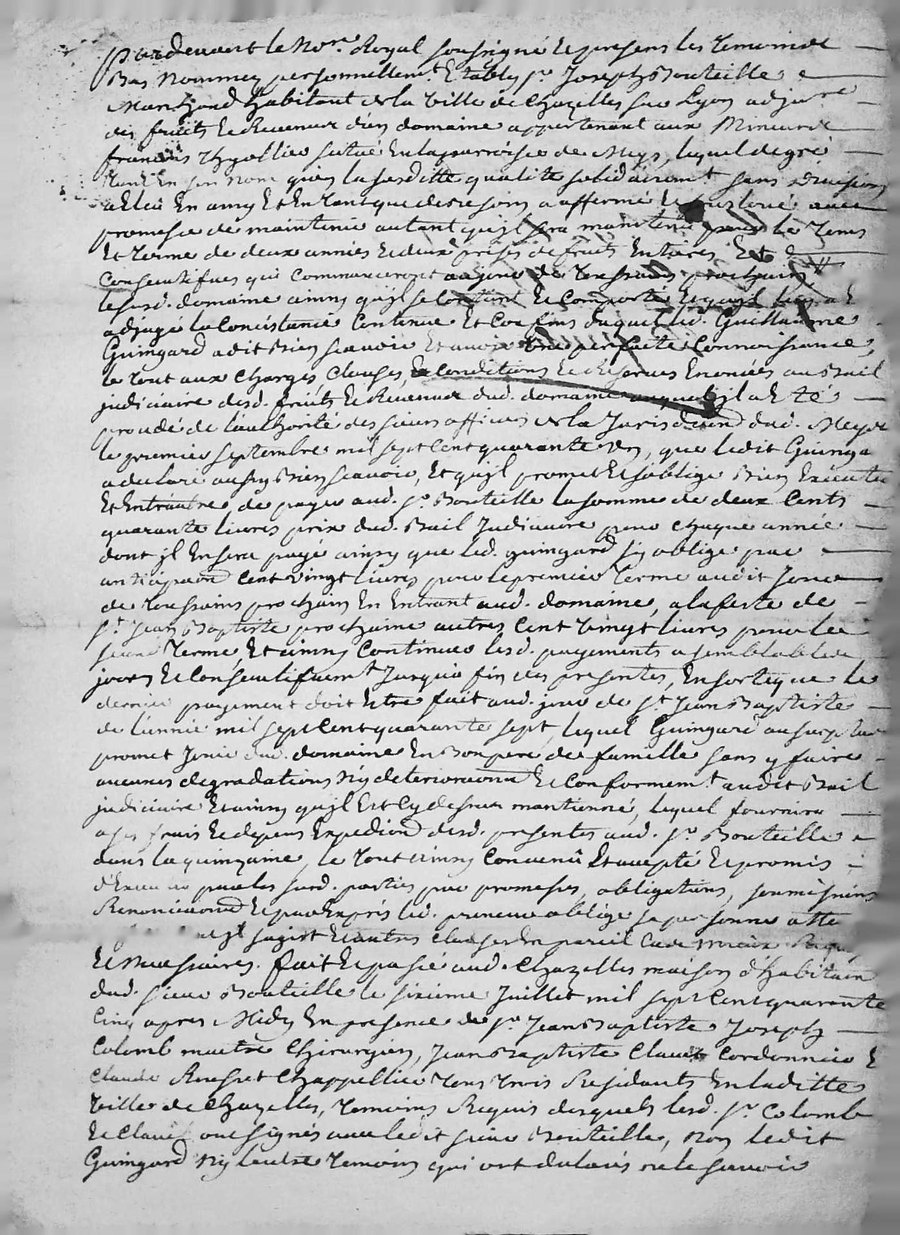 Pardevant le No.re Royal soussigné et presens les temoins
Bas Nommez personnellem.t Etably s.r Joseph Bouteille
Marchand habitant de la Ville de Chazelles sur Lyon adju.re
des fruits Et Revenux d'un domaine appartenant aux Mineurs
françois situé En la parroisse de Meys, lequel de gré
tant En son nom qu'en la susditte qualité solidairem.t sans division
En tant que de Raison a affermé
promesse de maintenir autant qu'il sera maintenu pour le Tems
Et terme de deux années Et deux prises de fruits Entieres Et
Consecutifves qui Commenceront au jour de Toussains prochain
le susd. domaine ainsy qu'il se Contient Et Comporte
adjugé la Concistance Contenue Et Confins duquel led. Guillaume
Guingard a dit Bien sçavoir Et avoir Une perfaite Connoissance,
le tout aux Charges, Clauses, Et Conditions Et Reserves Enoncées au Bail
judiciaire desd. fruits Et Revenux dud. domaine auquel il a Eté
procédé de l'authorité des sieurs officiers de la Jurisdiction dud. Meys
le premier septembre mil sept Cent quarante un, que ledit Guinga
a déclaré aussy Bien scavoir, Et qu'jl promet Et s'oblige Bien Executer
Et Entretenir, de payer aud. s.r Bouteille la somme de deux Cents
quarante livres prix dud. Bail Judiciaire pour Chaque année
dont jl En sera payé ainsy que led. guingard s'y oblige par
anticipation Cent vingt livres pour le premier terme audit Jour
de Toussains prochain En Entrant aud. domaine, a la feste de
S.t Jean Baptiste prochaine autres Cent vingt livres pour le
second Terme, Et ainsy Continuer lesd. payements a semblables
jours Et Consecutifvem.t jusqu'a fin des presentes, En sorte que le
dernier payement doit Etre fait aud. jour de S.t Jean Baptiste
de l'année mil sept Cent quarante sept, lequel Guingard au surplus
promet Jouir dud. domaine En Bon pere de famille sans y faire
aucunes degradations Ny deterioration Et Conformem.t audit Bail
judiciaire Et ainsy qu'jl Est Cy dessus mantionné, lequel fournira
a ses frais Et depens Expedition desd. presentes aud. s.r Bouteille
dans la quinzaine, le tout ainsy Convenû Et accepté Et promis
d'Executer par les susd. parties par promesses, obligations, soumissions
Renonciations Et par Exprés led. preneur oblige sa personne atte
s'agist Et autres Clauses En pareil Cas
Et necessaires. fait Et passé aud. Chazelles maison d'habitation
dud. sieur Bouteille le sixieme Juillet mil sept Cent quarante
Cinq apres Midy En presence de s.r Jean Baptiste Joseph
Colomb maître Chirurgien, Jean Baptiste Claux Cordonnier Et
Claude Rousset Chappellier tous trois Residants En laditte
Ville de Chazelles, temoins Requis desquels lesd. s.r Colomb
Et Claux ont signés avec ledit sieur Bouteille, non ledit
Guingard Ny l'autre Temoin qui ont déclarés ne le sçavoir